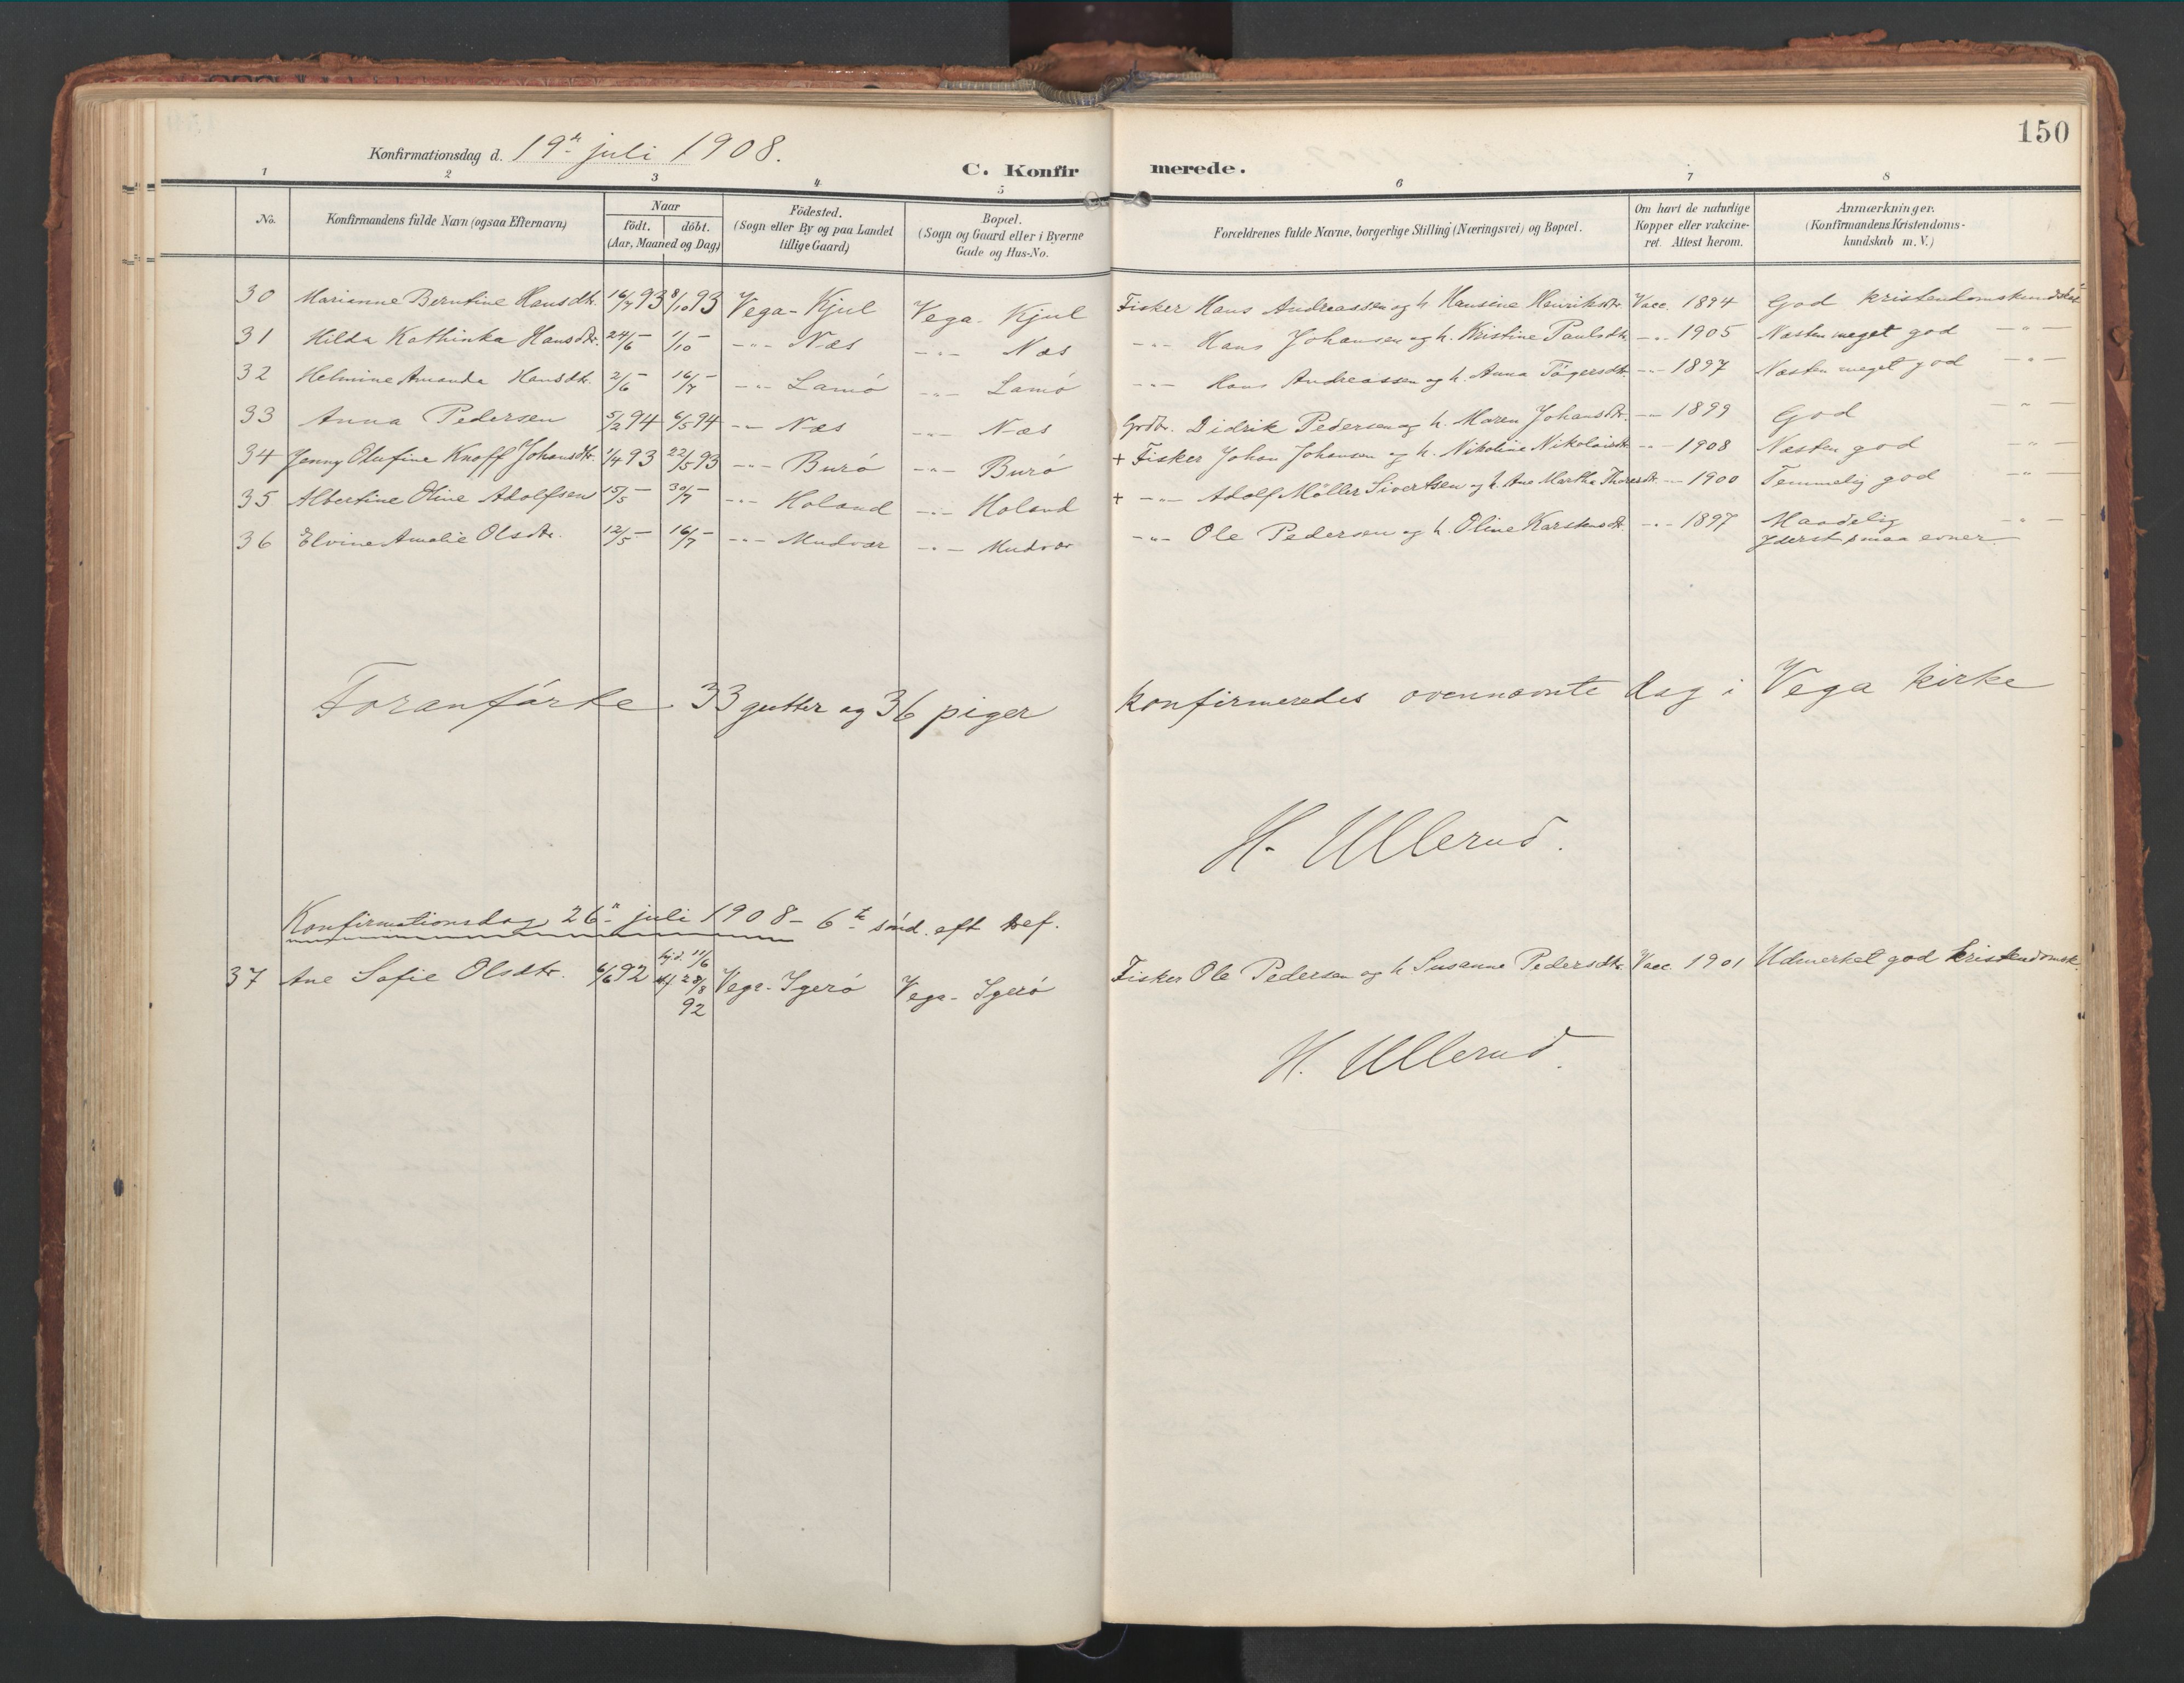 150
Konfirmationsdag d. 19de juli 1908.
C. Konfirmerede.
1 2 3 4 5 6 7 8
No. Konfirmandens fulde Navn (ogsaa Efternavn) Naar födt. döbt. (Aar, Maaned og Dag) Födested. (Sogn eller By og paa Landet tillige Gaard) Bopæl. (Sogn og Gaard eller i Byerne Gade og Hus-No. Forældrenes fulde Navne, borgerlige Stilling (Næringsvei) og Bopæl. Om havt de naturlige Kopper eller vakcineret. Attest herom. Anmærkninger. (Konfirmandens Kristendomskundskab m.V.)
30 Marianne Berntine Hansdtr. 16/7 93 8/10 93 Vega - Kjul Vega - Kjul Fisker Hans Andreassen og h. Hansine Henriksdtr. Vacc. 1894 God kristendomskundskab
31 Hilda Kathinka Hansdtr. 24/6 - 1/10 - -"- Næs -"- Næs -"- Hans Johansen og h. Kristine Paulsdtr. -"- 1905 Næsten meget god -"-
32 Helmine Amanda Hansdtr. 2/6 - 16/7 - -"- Lamö -"- Lamö -"- Hans Andreassen og h. Anna Tögersdtr. -"- 1897 Næsten meget god -"-
33 Anna Pedersen 5/2 94 6/5 94 -"- Næs -"- Næs Grdbr. Didrik Pedersen og h. Maren Johansdtr. -"- 1899 God -"-
34 Jenny Olufine Knoff Johansdtr. 1/4 93 22/5 93 -"- Burö -"- Burö + Fisker Johan Johansen og h. Nikoline Nikolaisdtr. -"- 1908 Næsten god -"-
35 Albertine Oline Adolfsen 15/5 - 30/7 - -"- Holand -"- Holand + -"- Adolf Möller Sivertsen og h. Ane Martha Thoresdtr. -"- 1900 Temmelig god -"-
36 Elvine Amalie Olsdtr. 12/5 - 16/7 - -"- Mudvær -"- Mudvær -"- Ole Pedersen og h. Oline Karstensdtr. -"- 1897 Maadelig -"-
Yderst smaa evner
Foranförte 33 gutter og 36 piger konfirmeredes ovennævnte dag i Vega kirke
H. Ullerud.
Konfirmationsdag 26de juli 1908 - 6te sönd. eft. tref.
37 Ane Sofie Olsdtr. 6/6 92 hjd. 11/6 stf. 28/8 92 Vega - Igerö Vega - Igerö Fisker Ole Pedersen og h. Susanne Pedersdtr. Vacc. 1901 Udmerket god kristendomsk.
H. Ullerud.